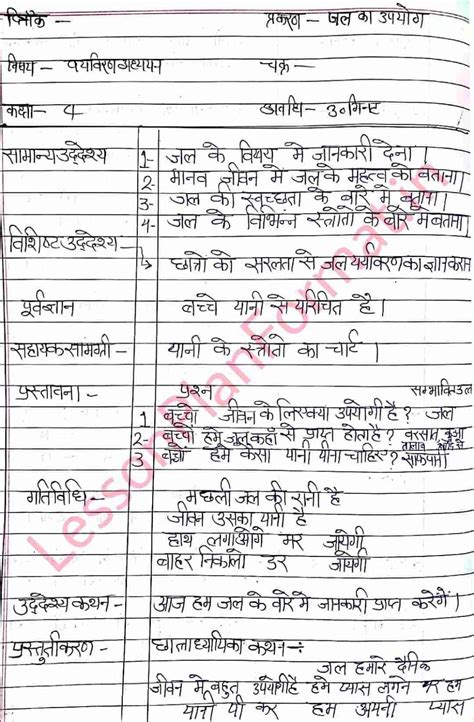 दिनाँक – प्रकरण – जल का उपयोग
विषय – पर्यावरण अध्ययन चक्र –
कक्षा – 4 अवधि – 30 मिनट
सामान्य उद्देश्य 1- जल के विषय मे जानकारी देना।
2- मानव जीवन मे जल के महत्व को बताना।
3- जल की स्वच्छता के बारे मे बताना।
4- जल के विभिन्न स्त्रोतो के बारे मे बताना।
विशिष्ट उद्देश्य –
छात्रों को सरलता से जल पर्यावरण का ज्ञान कराना
पूर्वज्ञान बच्चे पानी से परिचित है।
सहायक सामग्री – पानी के स्त्रोतो का चार्ट।
प्रस्तावना – प्रश्न सम्भावित उत्तर
1 बच्चो जीवन के लिए क्या उपयोगी है? जल
2- बच्चों हमे जल कहाँ से प्राप्त होता है? बरसात, कुआ
तालाब आदि से
3 बच्चों हमे कैसा पानी पीना चाहिए? साफ पानी।
गतिविधि – मछली जल की रानी है
जीवन उसका पानी है
हाथ लगाओगे मर जायेगी
बाहर निकालो डर जायेगी
उद्देश्य कथन – आज हम जल के बारे मे जानकारी प्राप्त करेगें।
प्रस्तुतीकरण – छात्राध्यापिका कथन –:
जल हमारे दैनिक
जीवन मे बहुत उपयोगी है हमे प्यास लगने पर हम
पानी पी कर हम अपनी प्यास
LessonPlanFormat.in